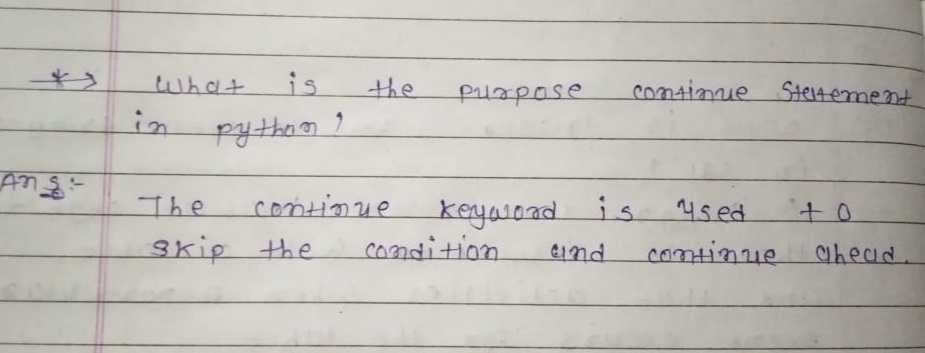 *→ What is the purpose continue Statement
in python?
Ans:-
The continue keyword is used to
skip the condition and continue ahead.